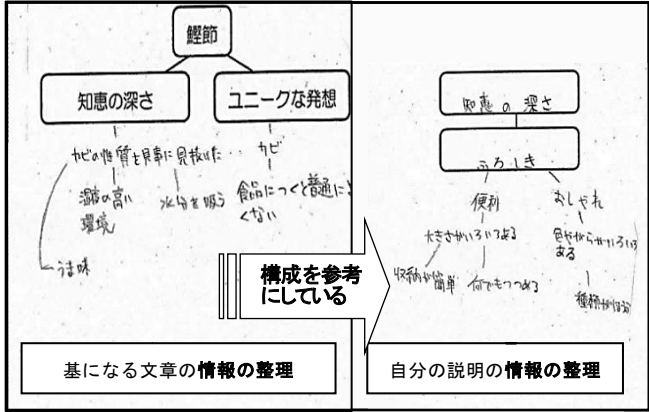 鰹節
知恵の深さ
ユニークな発想
カビの性質を見事に見抜いた
カビ
湿度の高い
環境
水分を吸う
食品につくと普通によ
くない
うま味
構成を参考
にしている
基になる文章の情報の整理
知恵の深さ
ふろしき
便利
おしゃれ
大きさがいろいろある
色やがらがいろいろ
ある
収納が簡単
何でもつつめる
種類が
自分の説明の情報の整理